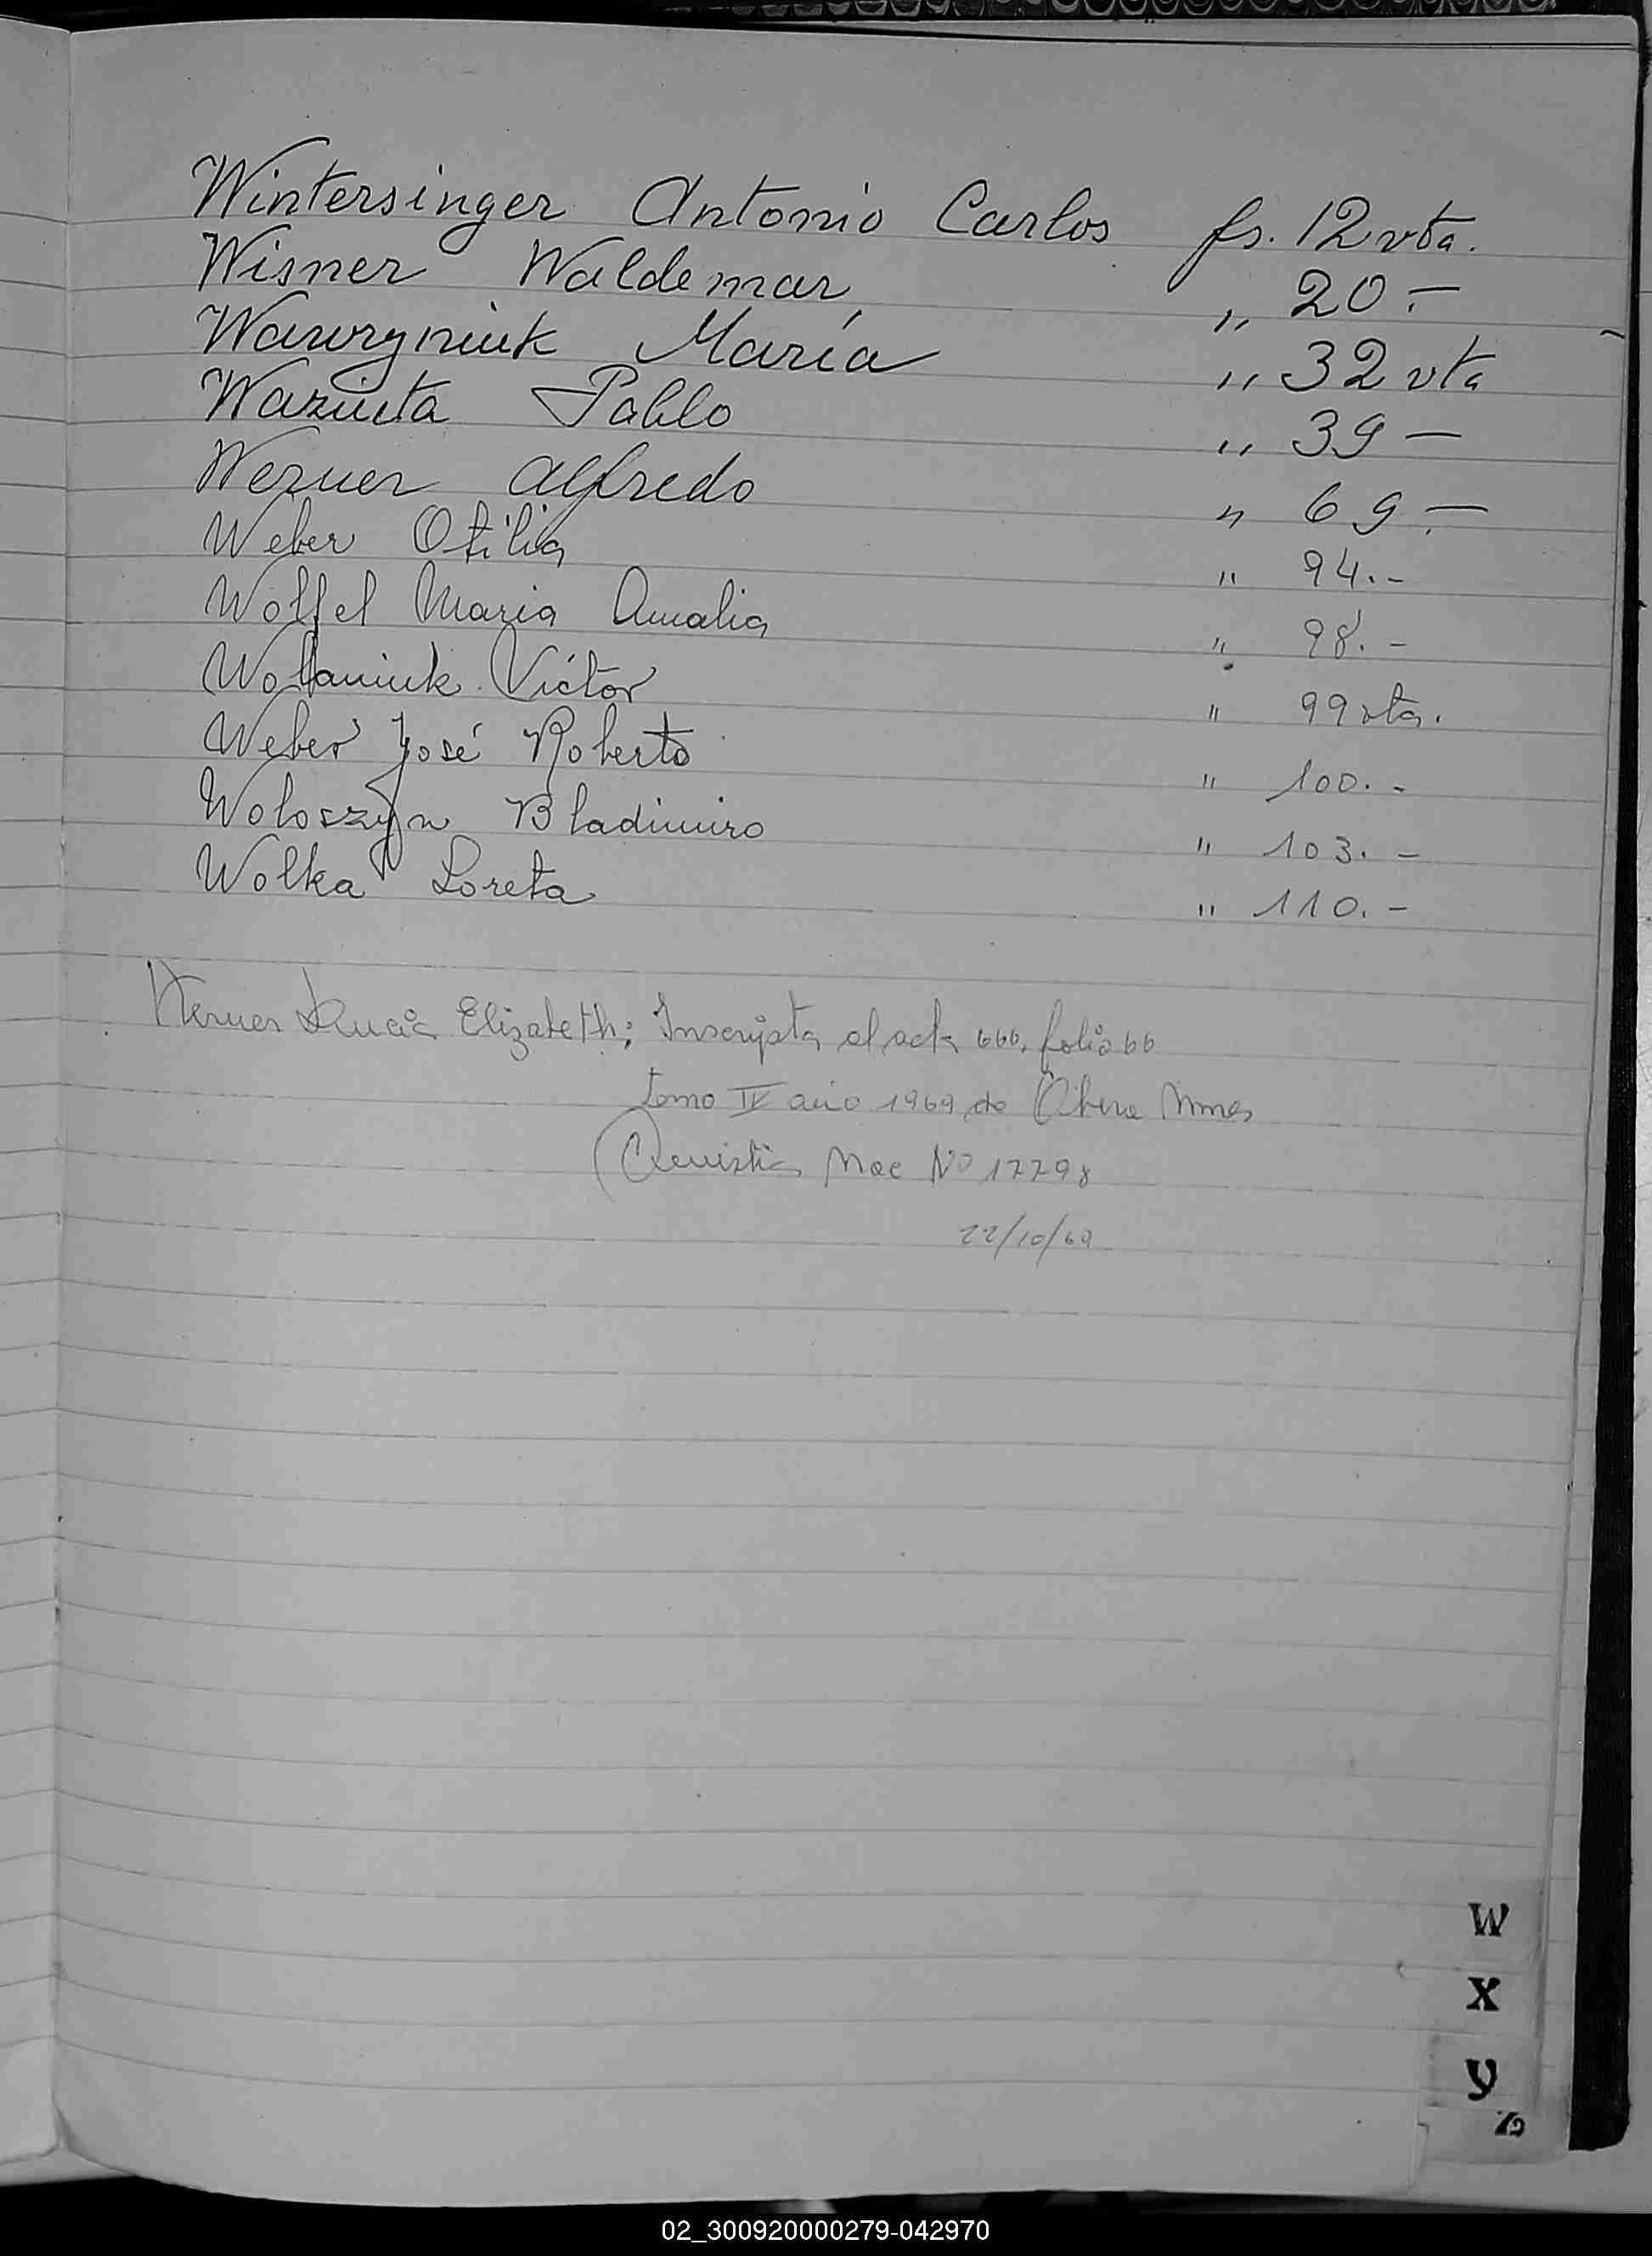 Wintersinger Antonio Carlos fs. 12 vta.
Wisner Waldemar „ 20.—
Wawryniuk María „ 32 vta
Waziuta Pablo „ 39 —
Werner Alfredo „ 69.—
Weber Otilia " 94.-
Wolfel Maria Amalia " 98.-
Wollaniuk Víctor " 99 vta.
Weber José Roberto " 100.-
Woloszyn Bladimiro " 103.-
Wolka Loreta " 110.-
Werner Lucia Elizabeth; Inscripta al acta 666, folio 66
tomo IV año 1969 de Obera Mnes
Nac Nº 17798
22/10/69
W
X
Y
Z
02_300920000279-042970